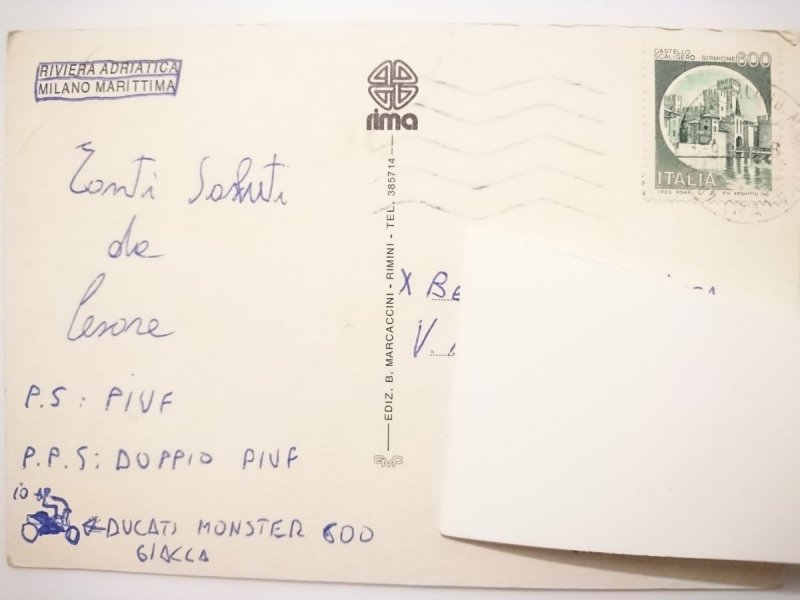 RIVIERA ADRIATICA
MILANO MARITTIMA
Tanti Saluti
da
Cesare
P.S: PIUF
P.P.S: DOPPIO PIUF
io
DUCATI MONSTER 600
GIACCA
rima
EDIZ. B. MARCACCINI - RIMINI - TEL. 385714
GMP
CASTELLO
SCALIGERO - SIRMIONE
600
ITALIA
X BE
V.